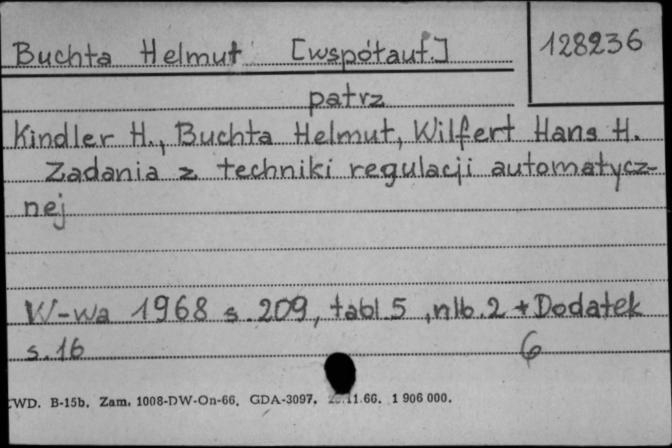 Buchta Helmut [współaut.]
128236
patrz
Kindler H., Buchta Helmut, Wilfert Hans H.
Zadania z techniki regulacji automatycz-
nej
W-wa 1968 s. 209, tabl. 5, nlb. 2 + Dodatek
s. 16
6
CWD. B-15b. Zam. 1008-DW-On-66. GDA-3097. 11.66. 1 906 000.